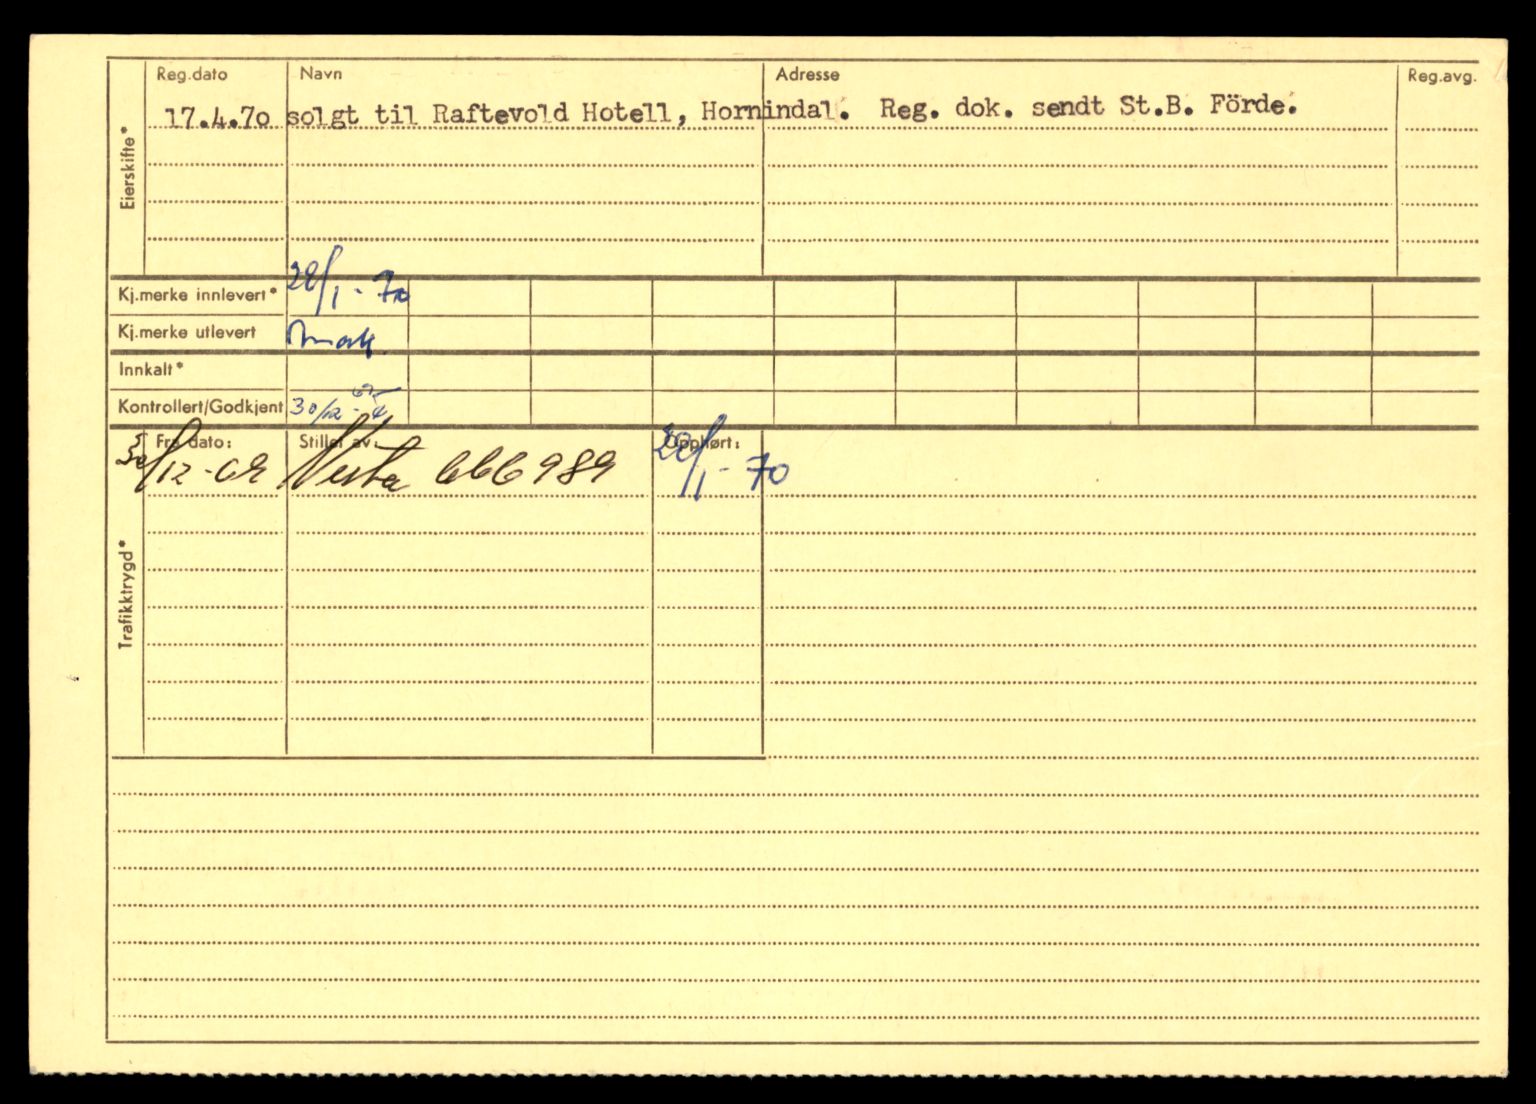 Reg.dato Navn Adresse Reg.avg.
17.4.70 solgt til Raftevold Hotell, Hornindal. Reg. dok. sendt St.B. Förde.
Eierskifte*
Kj.merke innlevert* 28/1-70
Kj.merke utlevert
Innkalt*
Kontrollert/Godkjent 30/12-
Fra dato: Stillet av: Opphørt:
30/12-69 Vesta 666989 28/1-70
Trafikktrygd*